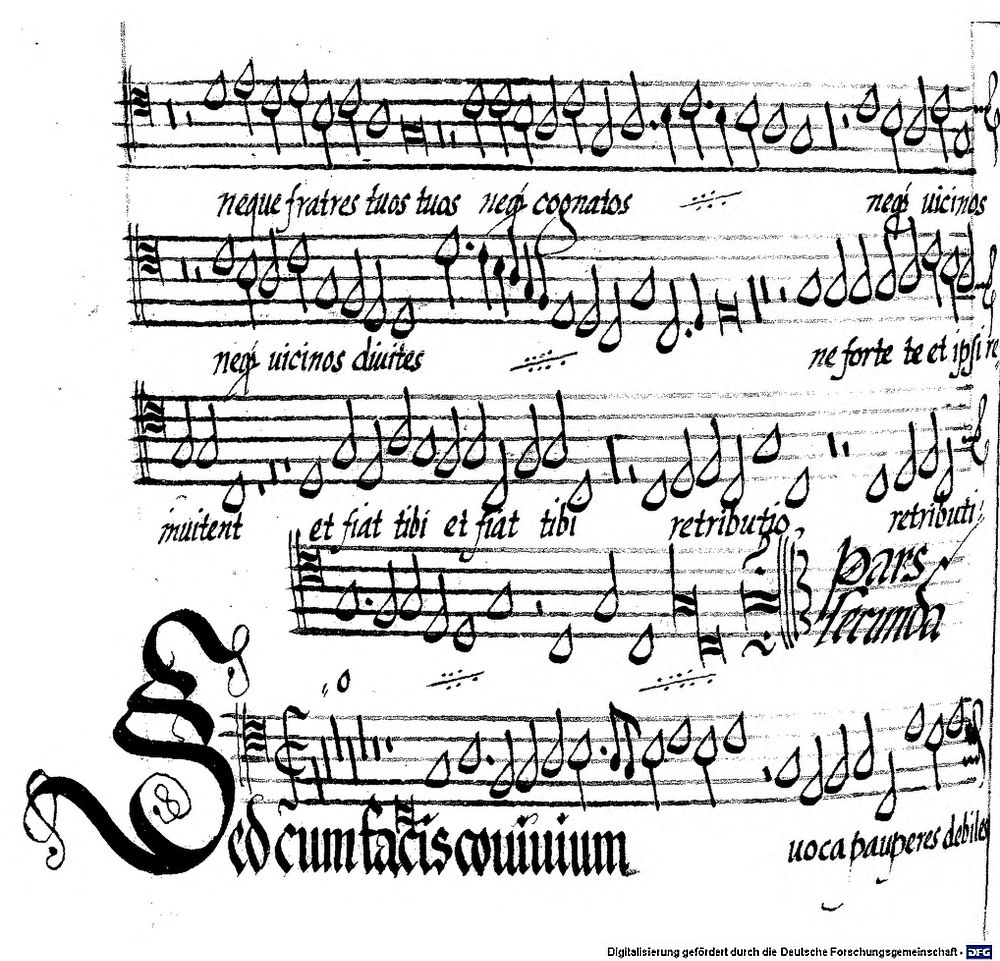 neque fratres tuos tuos neq₃ cognatos neq₃ uicinos
neq₃ uicinos diuites ne forte te et ipsi re
inuitent et fiat tibi et fiat tibi retributio retributi
pars
secunda
Sed cum facis conuiuium uoca pauperes debiles
Digitalisierung gefördert durch die Deutsche Forschungsgemeinschaft - DFG